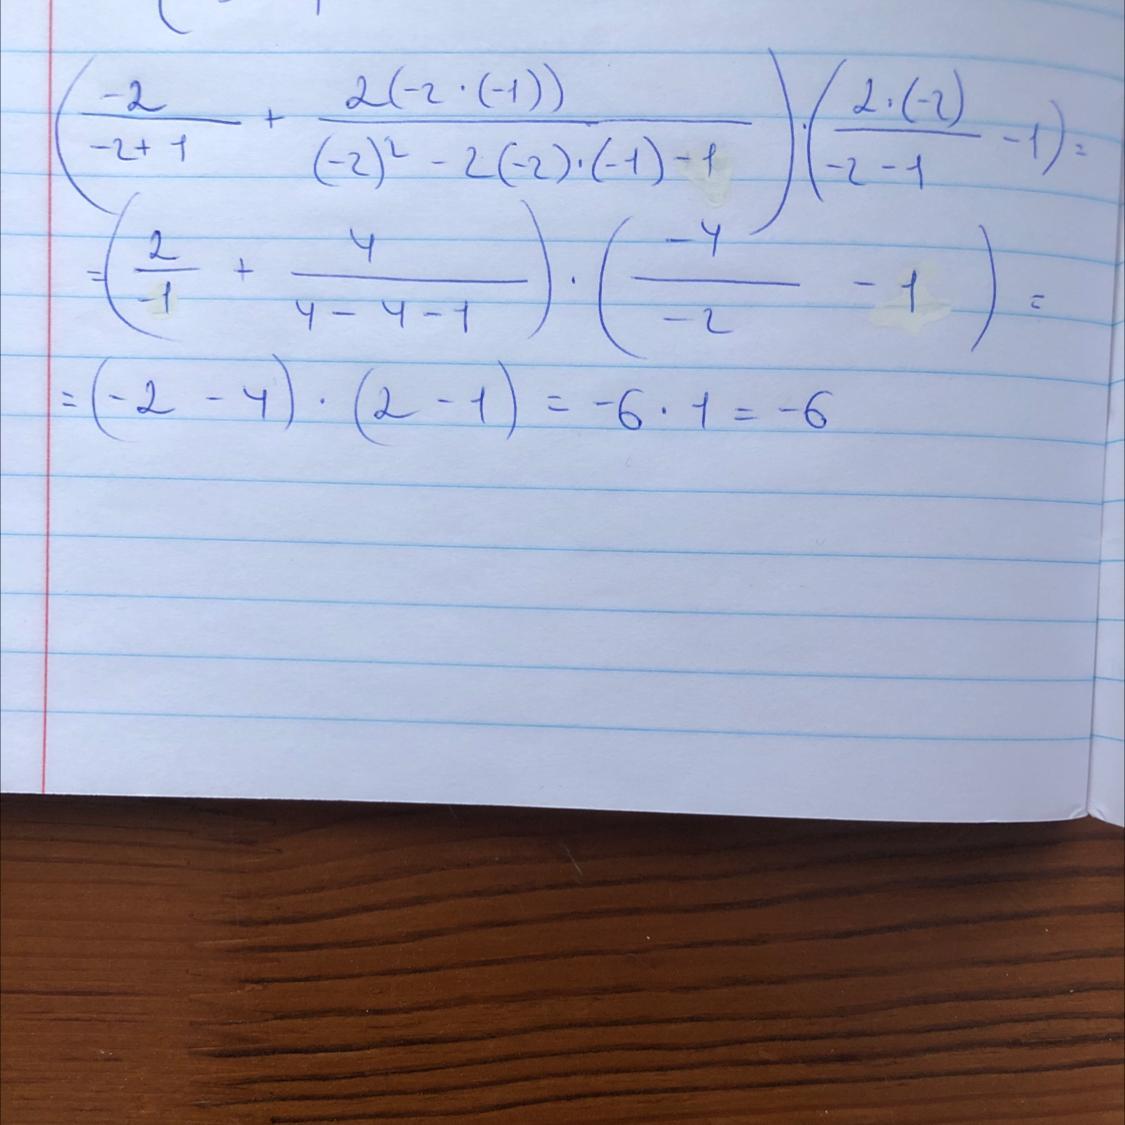 (-2/(-2+1) + 2(-2·(-1))/((-2)² - 2(-2)·(-1) - 1))·(2·(-2)/(-2-1) - 1) =
= (2/-1 + 4/(4-4-1)) · (-4/-2 - 1) =
= (-2 - 4) · (2 - 1) = -6 · 1 = -6